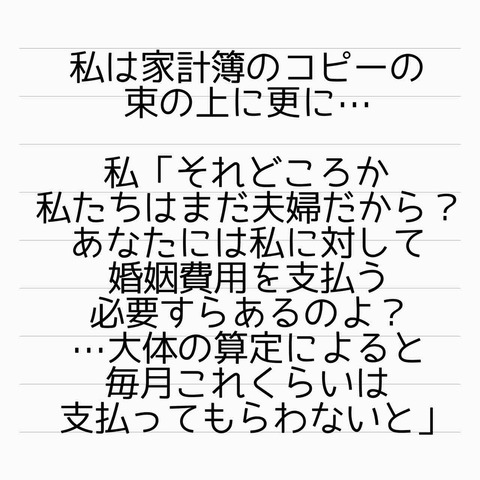 私は家計簿のコピーの
束の上に更に…
私「それどころか
私たちはまだ夫婦だから？
あなたには私に対して
婚姻費用を支払う
必要すらあるのよ？
…大体の算定によると
毎月これくらいは
支払ってもらわないと」